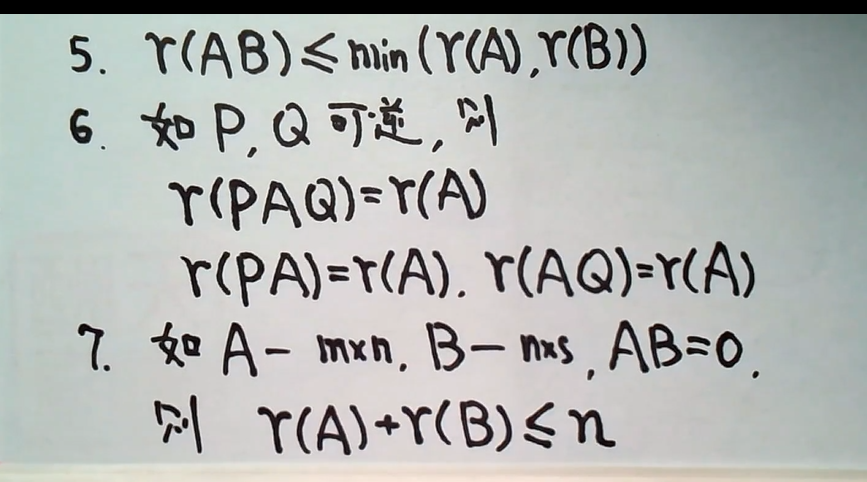 5. r(AB)≤min(r(A),r(B))
6. 如P,Q可逆,则
r(PAQ)=r(A)
r(PA)=r(A). r(AQ)=r(A)
7. 如A-m×n. B-n×s, AB=0.
则 r(A)+r(B)≤n